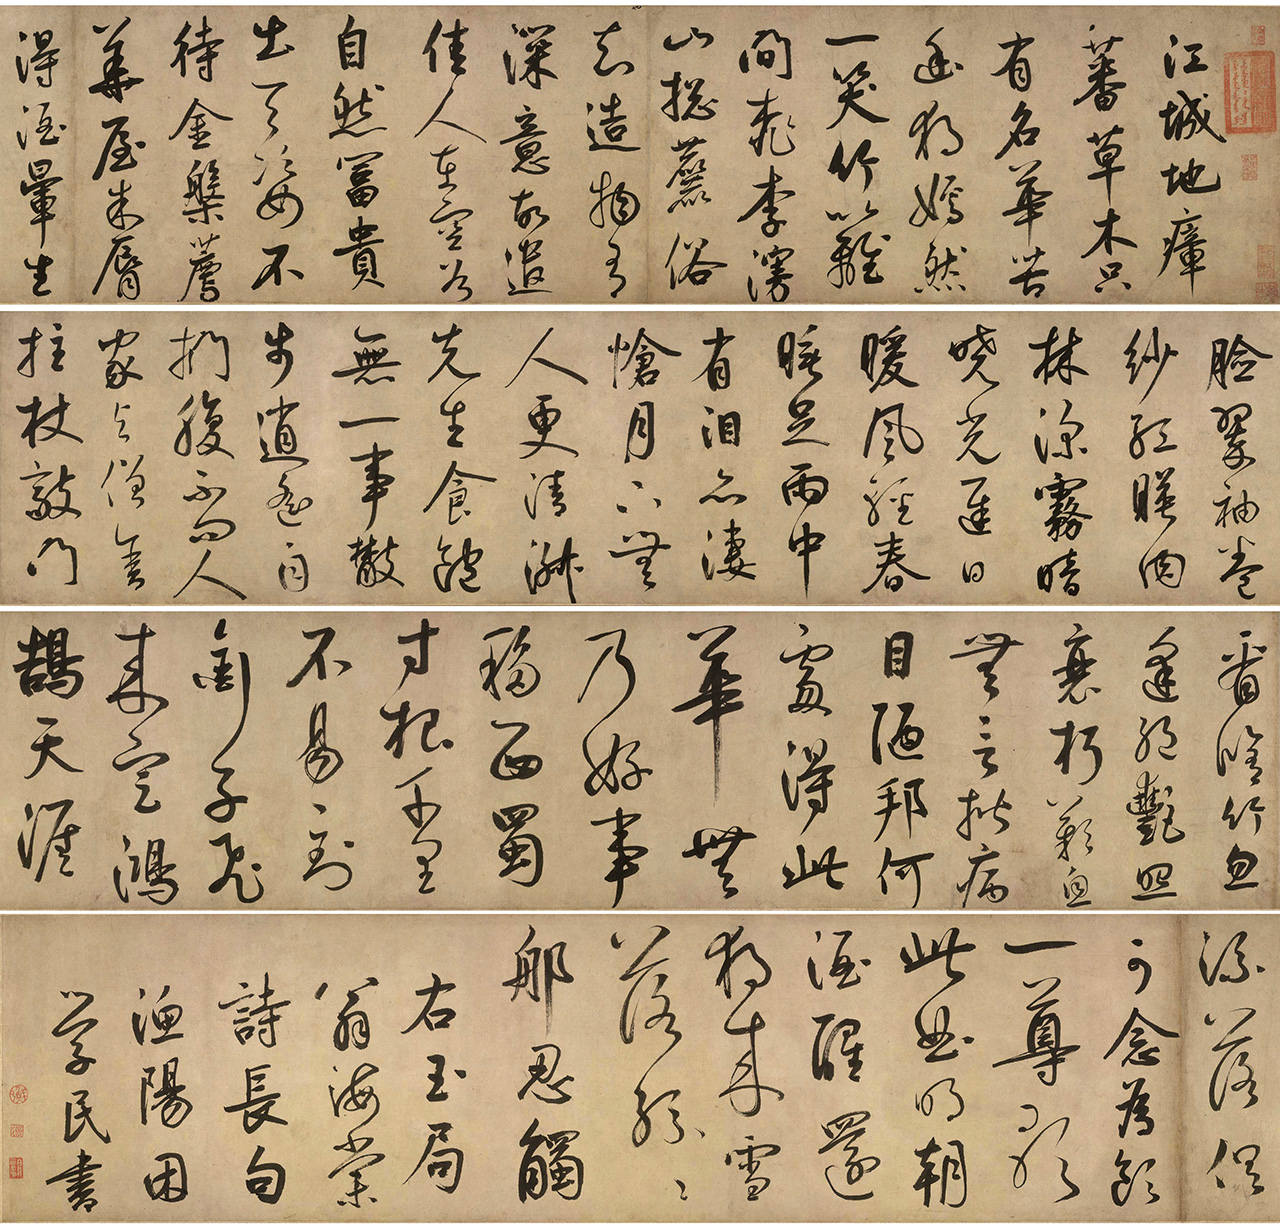 江城地瘴
蕃草木只
有名華苦
幽獨嫣然
一笑竹籬
間桃李漫
山揔麤俗
知造物有
深意故遣
佳人在空谷
自然富貴
出天姿不
待金盤薦
華屋朱脣
得酒暈生
臉翠袖卷
紗紅映肉
林深霧暗
曉光遲日
暖風輕春
睡足雨中
有淚亦悽
愴月下無
人更清淑
先生食飽
無一事散
步逍遙自
捫腹不問人
家與僧舍
拄杖敲門
看脩竹忽
逢絕艷照
衰朽歎息
無言揩病
目陋邦何
處得此
華無
乃好事
移西蜀
寸根千里
不易到
銜子飛
來定鴻
鵠天涯
流落俱
可念為飲
一尊歌
此曲明朝
酒醒還
獨來雪
落紛紛
那忍觸
右玉局
翁海棠
詩長句
漁陽困
學民書